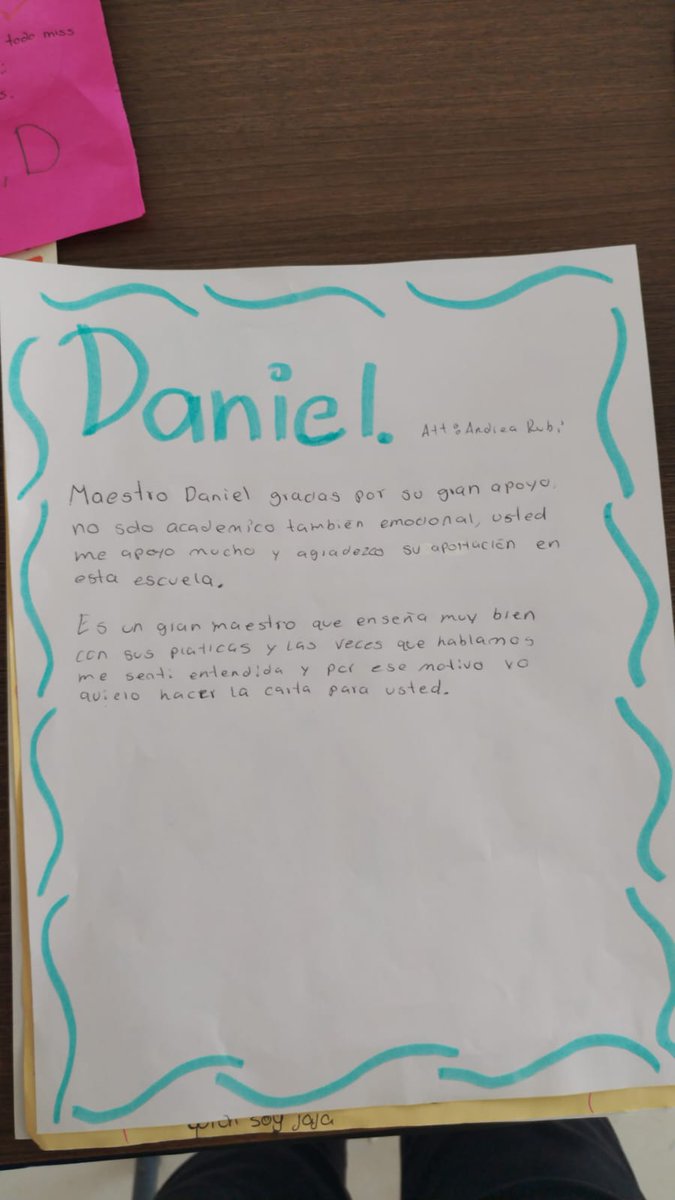 todo miss
s.
, D
Daniel.
Att: Andrea Rubi
Maestro Daniel gracias por su gran apoyo,
no solo academico también emocional, usted
me apoyo mucho y agradezco su aportación en
esta escuela.
Es un gran maestro que enseña muy bien
con sus platicas y las veces que hablamos
me senti entendida y por ese motivo yo
quiero hacer la carta para usted.
soy jaja